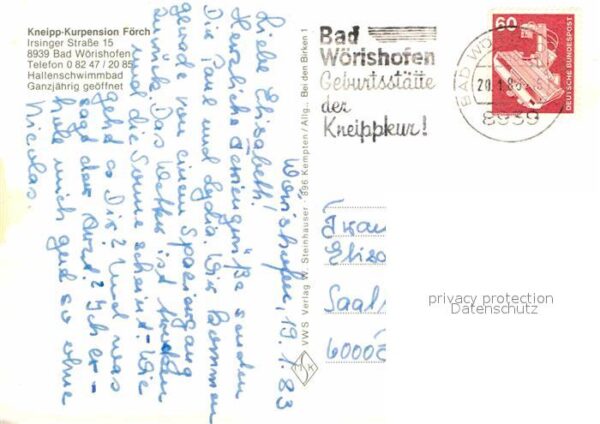 Kneipp-Kurpension Förch
Irsinger Straße 15
8939 Bad Wörishofen
Telefon 0 82 47 / 20 85
Hallenschwimmbad
Ganzjährig geöffnet
Wörishofen, 19.1.83
Liebe Elisabeth!
Herzliche Feriengrüße senden
Dir Paul und Lydia. Wir kommen
gerade von einem Spaziergang
zurück. Das Wetter ist trocken
und die Sonne scheint. Wie
geht es Dir? Und was
sagt der Arzt? Ich er-
hole mich gut so ohne
Nicolas.
VWS Verlag W. Steinhauser · 896 Kempten / Allg., Bei den Birken 1
Bad
Wörishofen
Geburtsstätte
der
Kneippkur!
BAD WÖ
20.1.83
8939
60
DEUTSCHE BUNDESPOST
Frau
Saal
6000
privacy protection
Datenschutz